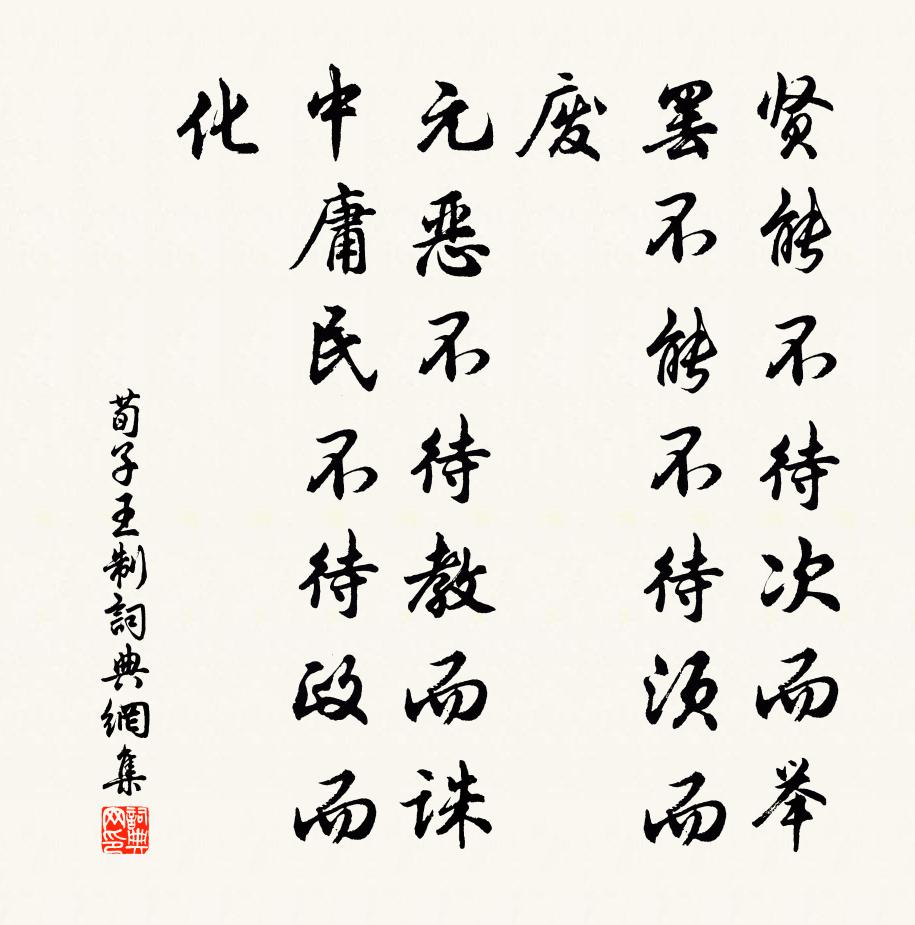 贤能不待次而举
罢不能不待须而
废
元恶不待教而诛
中庸民不待政而
化
荀子王制詞典網集
詞典网印